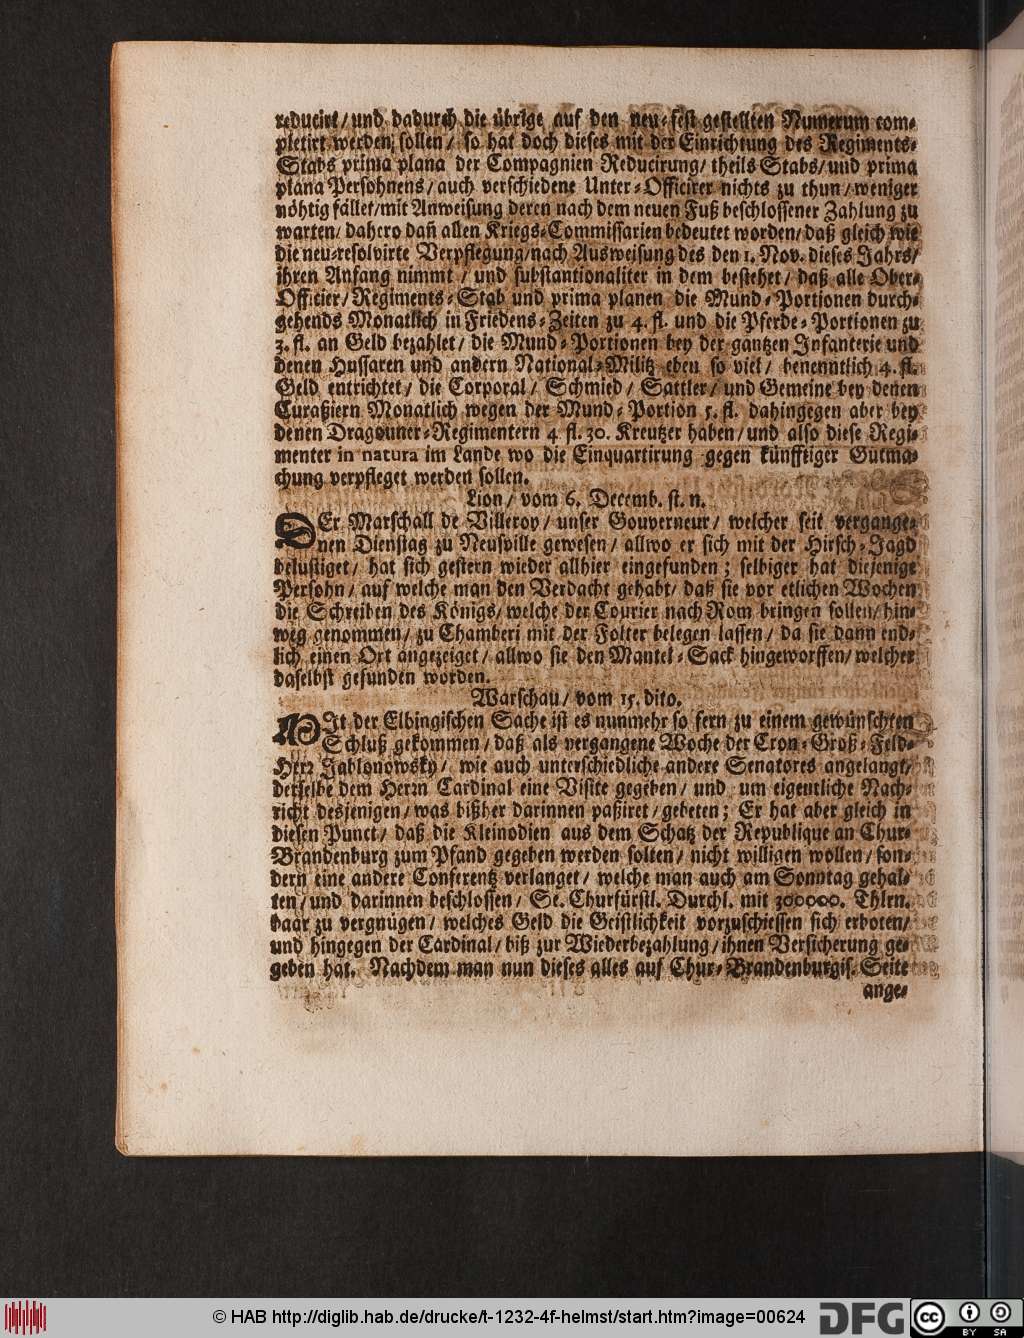 reducirt/und dadurch die übrige auf den neu-fest gestellten Numerum com-
pletirt werden sollen/ so hat doch dieses mit der Einrichtung des Regiments-
Stabs prima plana der Compagnien Reducirung/ theils Stabs/und prima
plana Persohnens/auch verschiedene Unter-Officirer nichts zu thun/weniger
nöhtig fället/mit Anweisung deren nach dem neuen Fuß beschlossener Zahlung zu
warten/ dahero dañ allen Kriegs-Commissarien bedeutet worden/ daß gleich wie
die neu-resolvirte Verpflegung/nach Ausweisung des den 1. Nov. dieses Jahrs/
ihren Anfang nimmt / und substantionaliter in dem bestehet/ daß alle Ober-
Officier/ Regiments-Stab und prima planen die Mund-Portionen durch-
gehends Monatlich in Friedens-Zeiten zu 4. fl. und die Pferde-Portionen zu
3. fl. an Geld bezahlet/ die Mund-Portionen bey der gantzen Infanterie und
denen Hussaren und andern National-Militz eben so viel/ benenntlich 4. fl.
Geld entrichtet/ die Corporal/ Schmied/ Sattler/ und Gemeine bey denen
Curaßiern Monatlich wegen der Mund-Portion 5. fl. dahingegen aber bey
denen Dragouner-Regimentern 4 fl. 30. Kreutzer haben/und also diese Regi-
menter in natura im Lande wo die Einquartirung gegen künfftiger Gutma-
chung verpfleget werden sollen.
Lion/ vom 6. Decemb. st. n.
DEr Marschall de Villeroy/ unser Gouverneur/ welcher seit vergange-
nen Dienstag zu Neufville gewesen/ allwo er sich mit der Hirsch-Jagd
belustiget/ hat sich gestern wieder allhier eingefunden; selbiger hat diejenige
Persohn/ auf welche man den Verdacht gehabt/ daß sie vor etlichen Wochen
die Schreiben des Königs/welche der Courier nach Rom bringen sollen/hin-
weg genommen/ zu Chamberi mit der Folter belegen lassen/ da sie dann end-
lich einen Ort angezeiget/ allwo sie den Mantel-Sack hingeworffen/welcher
daselbst gefunden worden.
Warschau/ vom 15. dito.
MIt der Elbingischen Sache ist es nunmehr so fern zu einem gewünschten
Schluß gekommen/ daß als vergangene Woche der Cron-Groß-Feld-
Herr Jablonowsky/ wie auch unterschiedliche andere Senatores angelangt/
derselbe dem Herrn Cardinal eine Visite gegeben/ und um eigentliche Nach-
richt desjenigen/was bißher darinnen paßiret/gebeten; Er hat aber gleich in
diesen Punct/ daß die Kleinodien aus dem Schatz der Republique an Chur-
Brandenburg zum Pfand gegeben werden solten/ nicht willigen wollen/ son-
dern eine andere Conferentz verlanget/ welche man auch am Sonntag gehal-
ten/und darinnen beschlossen/ Se. Churfürstl. Durchl. mit 300000. Thlrn.
baar zu vergnügen/ welches Geld die Geistlichkeit vorzuschiessen sich erboten/
und hingegen der Cardinal/ biß zur Wiederbezahlung/ihnen Versicherung ge-
geben hat. Nachdem man nun dieses alles auf Chur-Brandenburgis. Seite
ange-
© HAB http://diglib.hab.de/drucke/t-1232-4f-helmst/start.htm?image=00624
DFG
cc BY SA